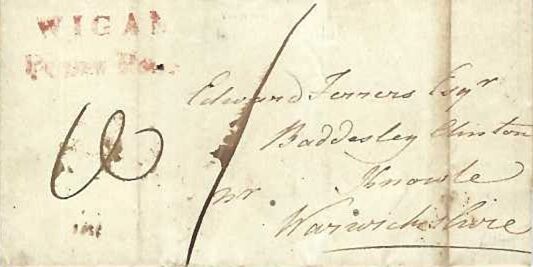 WIGAN
Penny Post
Edward Ferrers Esqr
Baddesley Clinton
Knowle
nr
Warwickshire